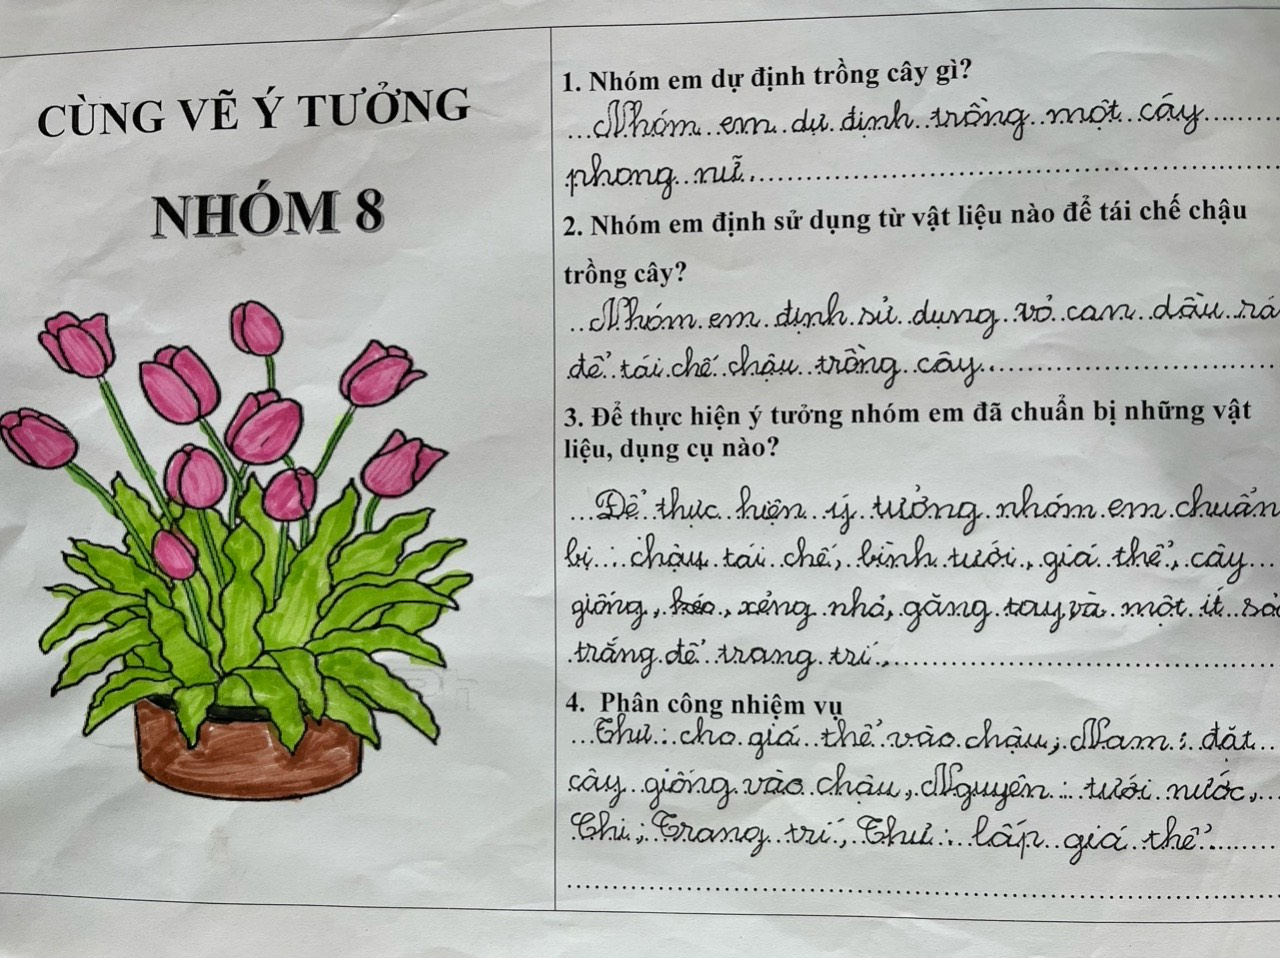 CÙNG VẼ Ý TƯỞNG
NHÓM 8
1. Nhóm em dự định trồng cây gì?
Nhóm em dự định trồng một cây
phong nữ
2. Nhóm em định sử dụng từ vật liệu nào để tái chế chậu
trồng cây?
Nhóm em định sử dụng vỏ can dầu
để tái chế chậu trồng cây
3. Để thực hiện ý tưởng nhóm em đã chuẩn bị những vật
liệu, dụng cụ nào?
Để thực hiện ý tưởng nhóm em chuẩn
bị : chậu tái chế, bình tưới, giá thể, cây
giống, kéo, xẻng nhỏ, găng tay và một ít
trắng để trang trí,
4. Phân công nhiệm vụ
Thư : cho giá thể vào chậu, Nam : đặt
cây giống vào chậu, Nguyên : tưới nước,
Chi : Trang trí, Thư : lấp giá thể